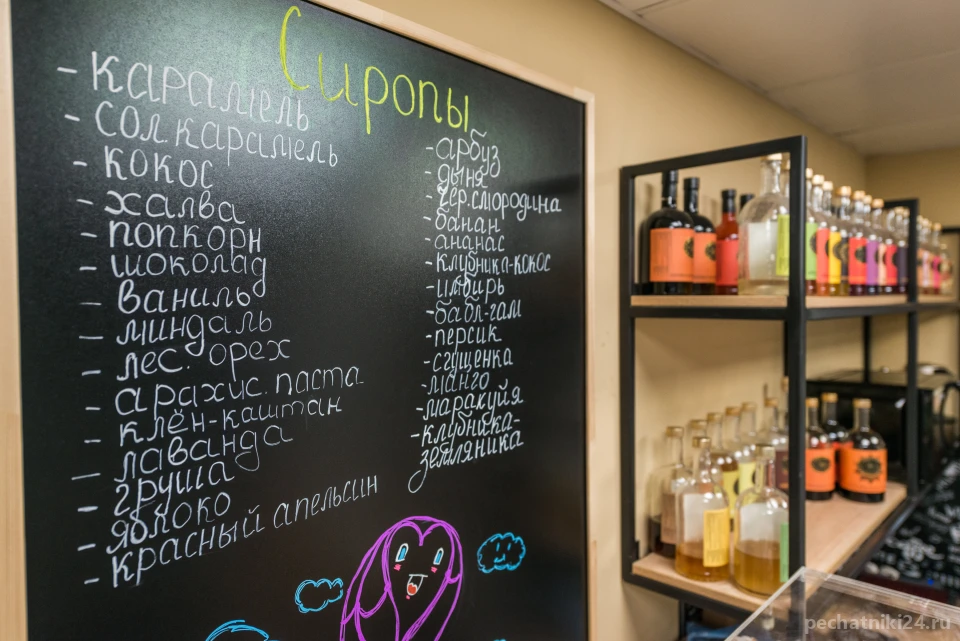 Сиропы
- карамель
- сол.карамель
- кокос
- халва
- попкорн
- шоколад
- ваниль
- миндаль
- лес. орех
- арахис. паста
- клён-каштан
- лаванда
- груша
- яблоко
- красный апельсин
- арбуз
- дыня
- чер.смородина
- банан
- ананас
- клубника-кокос
- имбирь
- бабл-гам
- персик
- сгущенка
- манго
- маракуйя
- клубника-
земляника
pechatniki24.ru